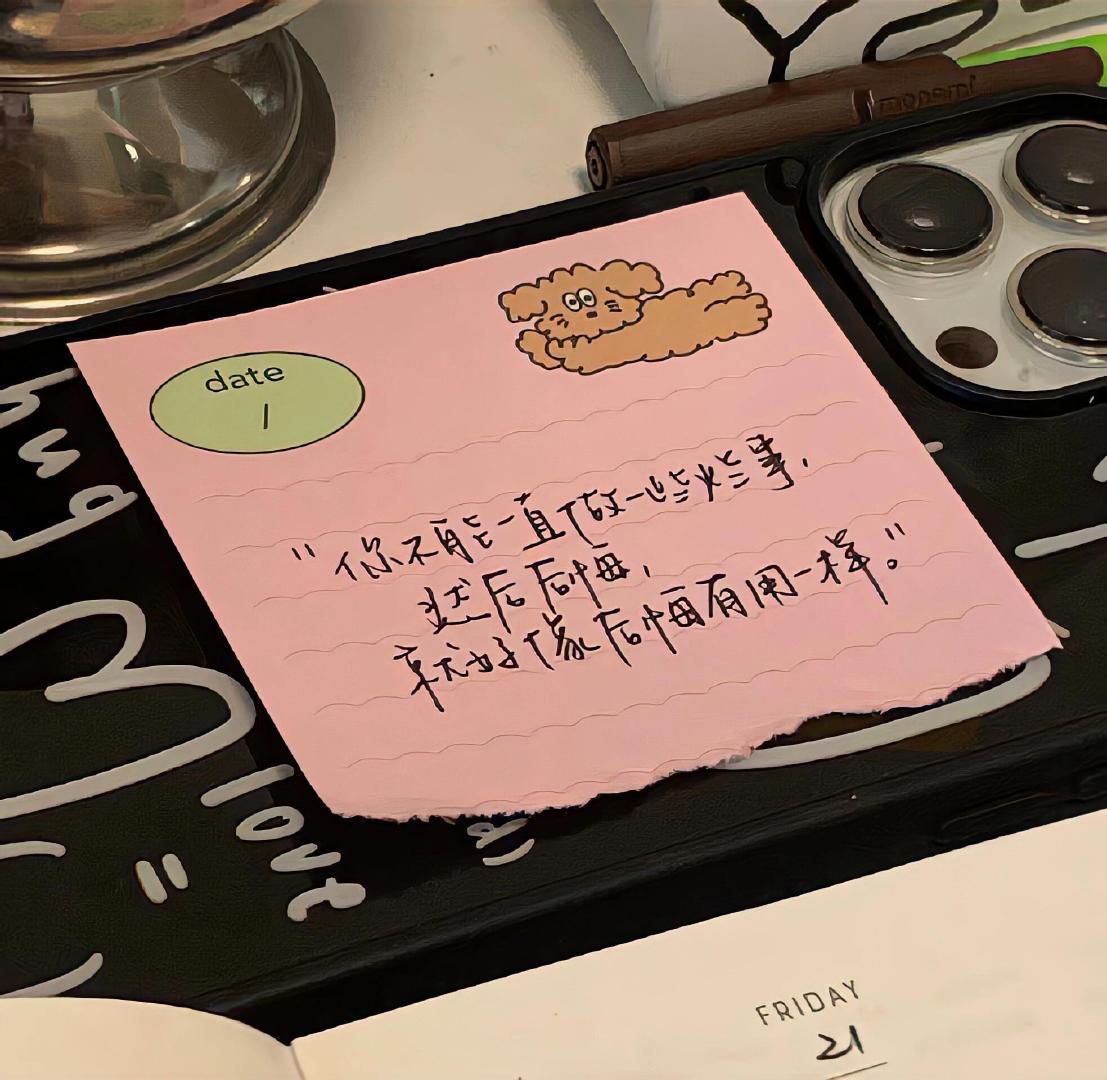 monami
date
/
"你不能一直做一些烂事,
然后后悔,
就好像后悔有用一样。"
hug
love
=
FRIDAY
21